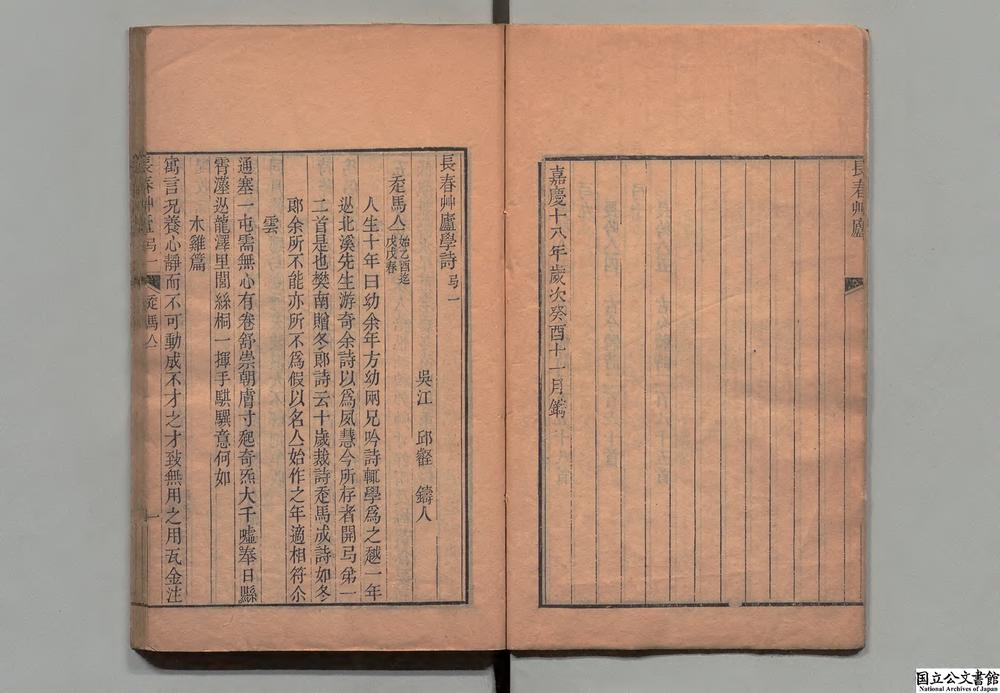 長春艸廬
嘉慶十八年歲次癸酉十一月鐫
長春艸廬學詩 弓一
吳江 邱壑 鑄人
走馬亼 始乙酉迄戊戌春
人生十年曰幼余年方幼兩兄吟詩輒學爲之越一年
从北溪先生游奇余詩以爲夙慧今所存者開弓弟一
二首是也樊南贈冬郎詩云十歲裁詩走馬成詩如冬
郎余所不能亦所不爲假以名亼始作之年適相符尒
雲
通塞一屯需無心有卷舒崇朝膚寸起奇炁大千噓奉日縣
霄藻从龍澤里閭絲桐一揮手騏驥意何如
木雞篇
寓言況養心靜而不可動成不才之才致無用之用瓦金注
長春艸廬 弓一 走馬亼 一
国立公文書館
National Archives of Japan